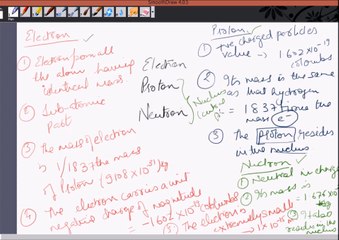 SmoothDraw 4.0.3
Electron
① Electron from all
the atom having
identical mass
② Sub-atomic
Part
③ The mass of electron
is 1/1837 the mass
of proton (9.108 × 10⁻³¹ kg
④ The electron carries a unit
negative charge of magnitude
-1.602 × 10⁻¹⁹ coulombs
⑤ The electron is
extremely small
1 × 10⁻¹⁵
Electron
Proton
Neutron
Nucleus
Proton
① +ve charged particles
value → 1.602 × 10⁻¹⁹
coulombs
② Its mass is the same
as that hydrogen
= 1837 times the
mass e⁻
③ The proton resides
in the nucleus
Neutron
① Neutral in charge
② Its mass is
1.675
③ It also
resides in the
nucleus